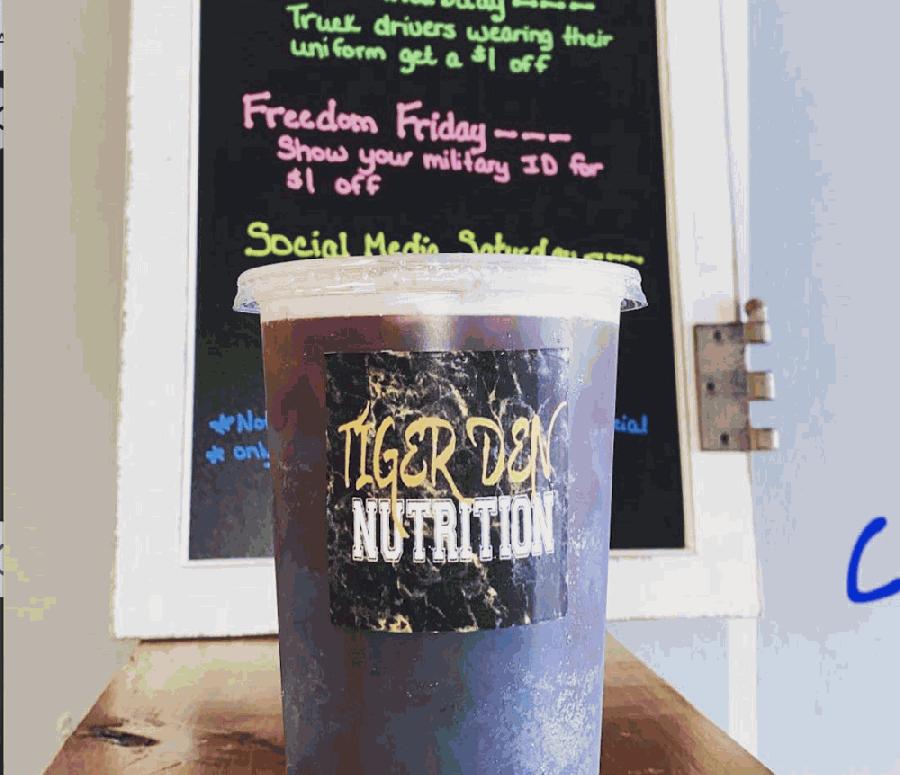 Truck drivers wearing their
uniform get a $1 off
Freedom Friday ----
Show your military ID for
$1 off
Social Media Saturday ----
TIGER DEN
NUTRITION